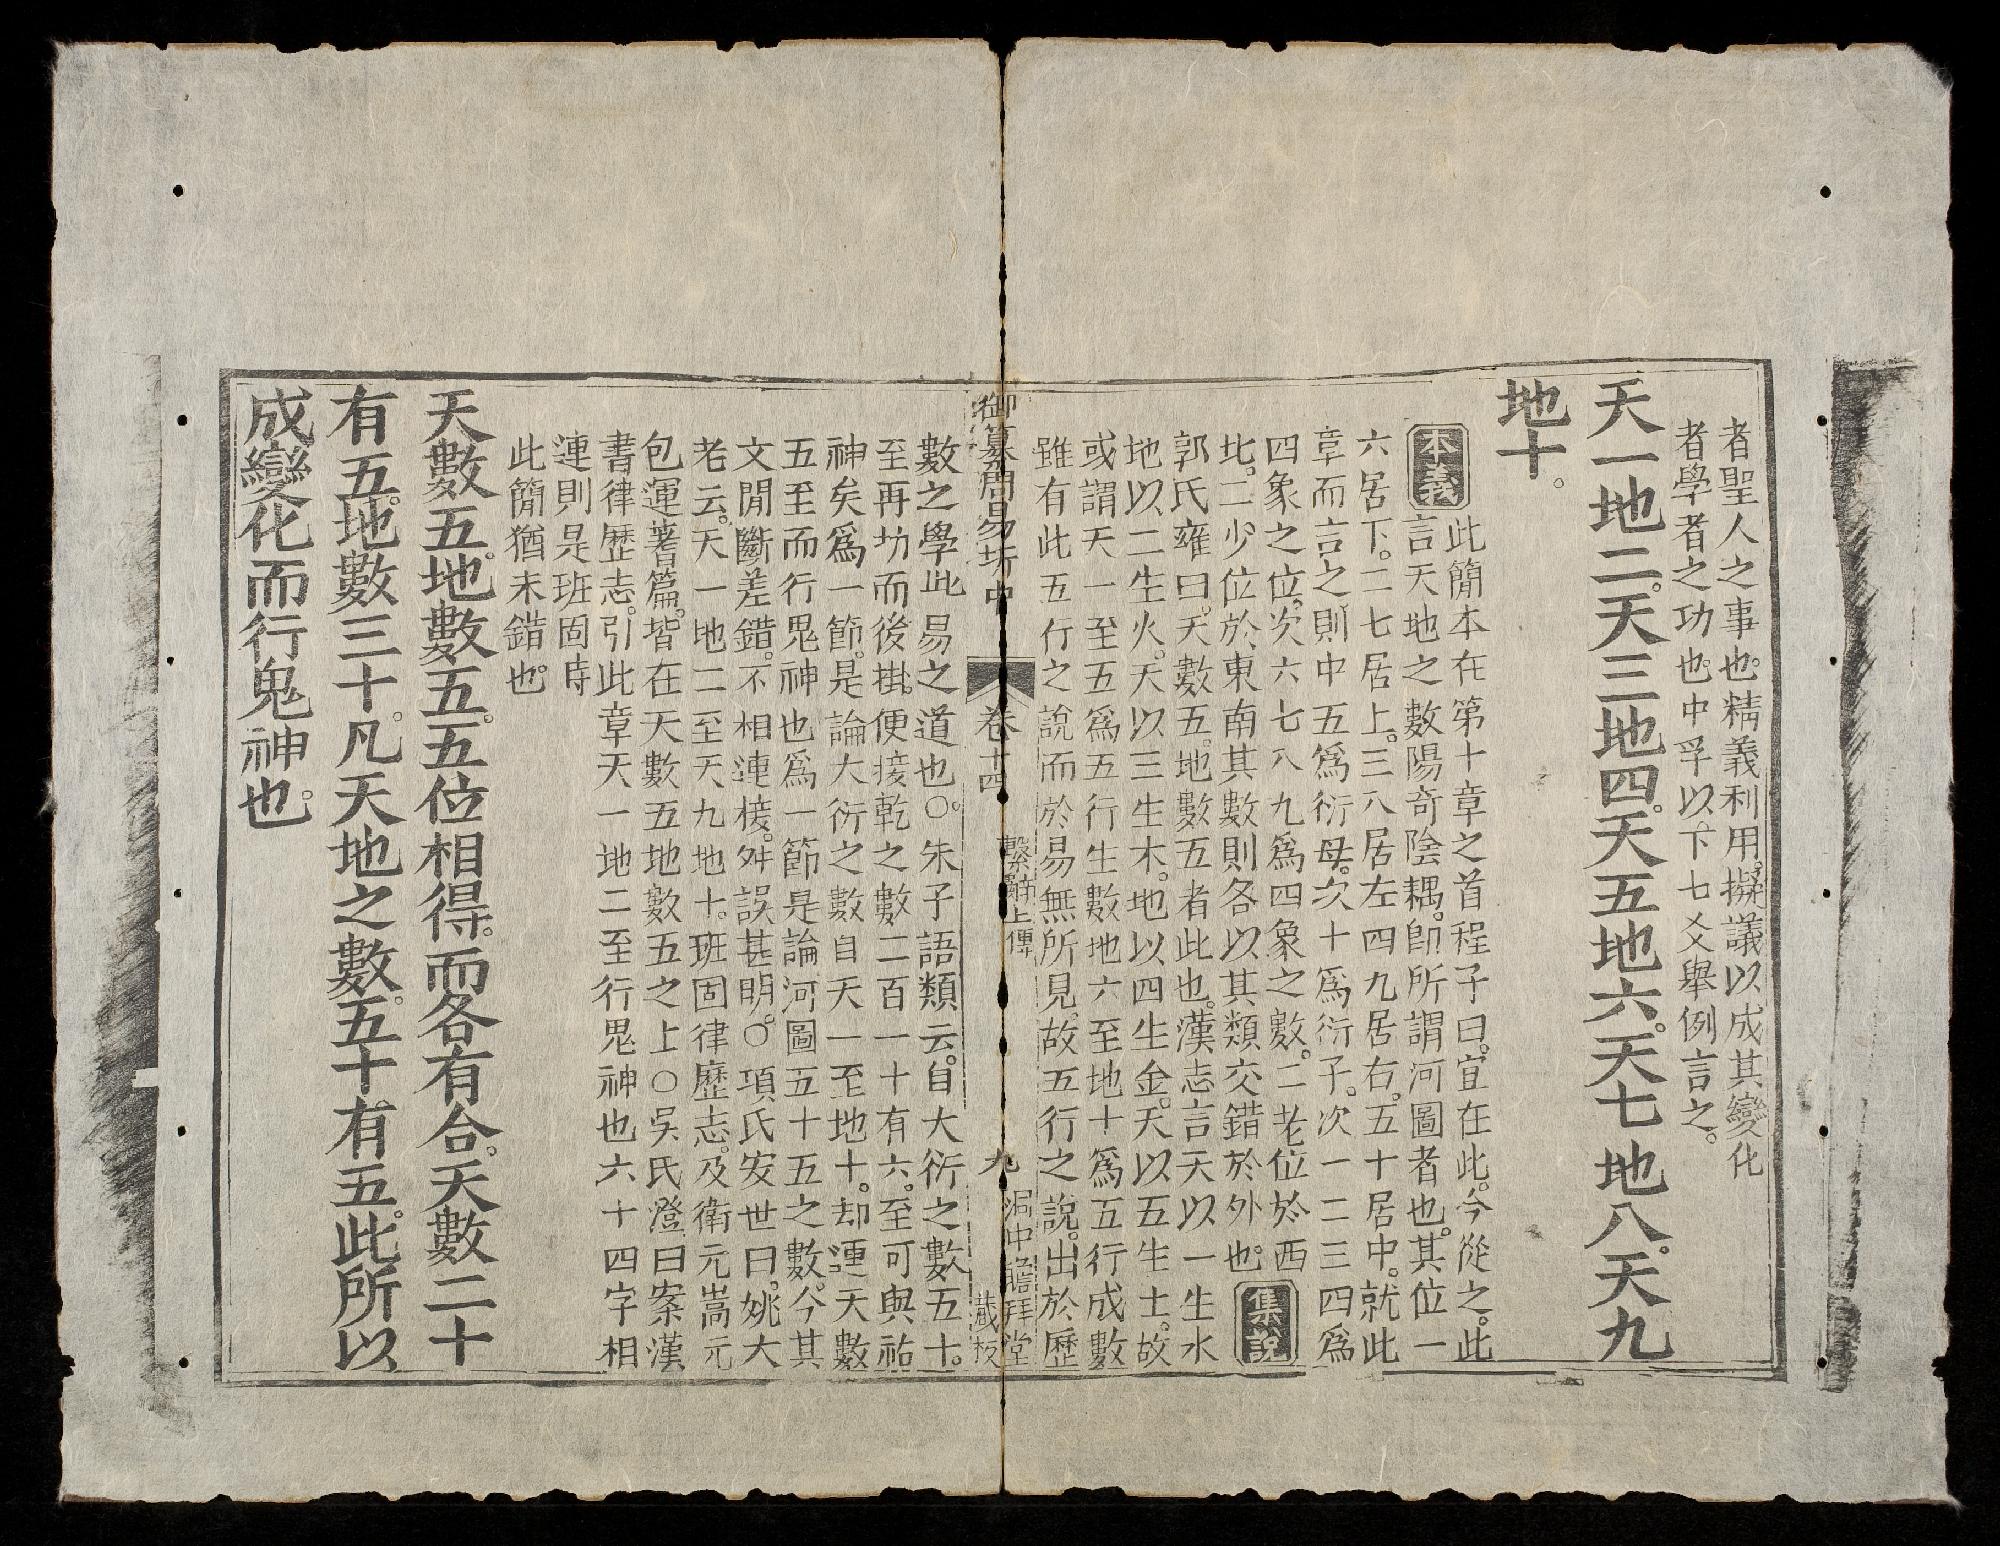 者聖人之事也。精義利用。擬議以成其變化
者學者之功也。中孚以下七爻舉例言之。
天一地二。天三地四。天五地六。天七地八。天九
地十。
本義
此簡本在第十章之首程子曰。宜在此。今從之。此
言天地之數陽奇陰耦。卽所謂河圖者也。其位一
六居下。二七居上。三八居左四九居右。五十居中。就此
章而言之。則中五爲衍母。次十爲衍子。次一二三四爲
四象之位。次六七八九爲四象之數。二老位於西
北。二少位於東南其數則各以其類交錯於外也。集說
郭氏雍曰。天數五。地數五者此也。漢志言天以一生水
地以二生火。天以三生木。地以四生金。天以五生土。故
或謂天一至五爲五行生數地六至地十爲五行成數
雖有此五行之說而於易無所見。故五行之說。出於歷
御纂周易折中 卷十四 繫辭上傳 九 澗中瞻拜堂
藏板
數之學此易之道也。○朱子語類云。自大衍之數五十。
至再扐而後掛。便接乾之數二百一十有六。至可與祐
神矣爲一節。是論大衍之數自天一至地十。却連天數
五至而行鬼神也爲一節是論河圖五十五之數。今其
文閒斷差錯。不相連接。舛誤甚明。○項氏安世曰。姚大
老云。天一地二至天九地十。班固律歷志。及衛元嵩元
包運蓍篇。皆在天數五地數五之上○吳氏澄曰案漢
書律歷志。引此章天一地二至行鬼神也六十四字相
連則是班固時
此簡猶未錯也。
天數五。地數五。五位相得。而各有合。天數二十
有五。地數三十。凡天地之數。五十有五。此所以
成變化而行鬼神也。